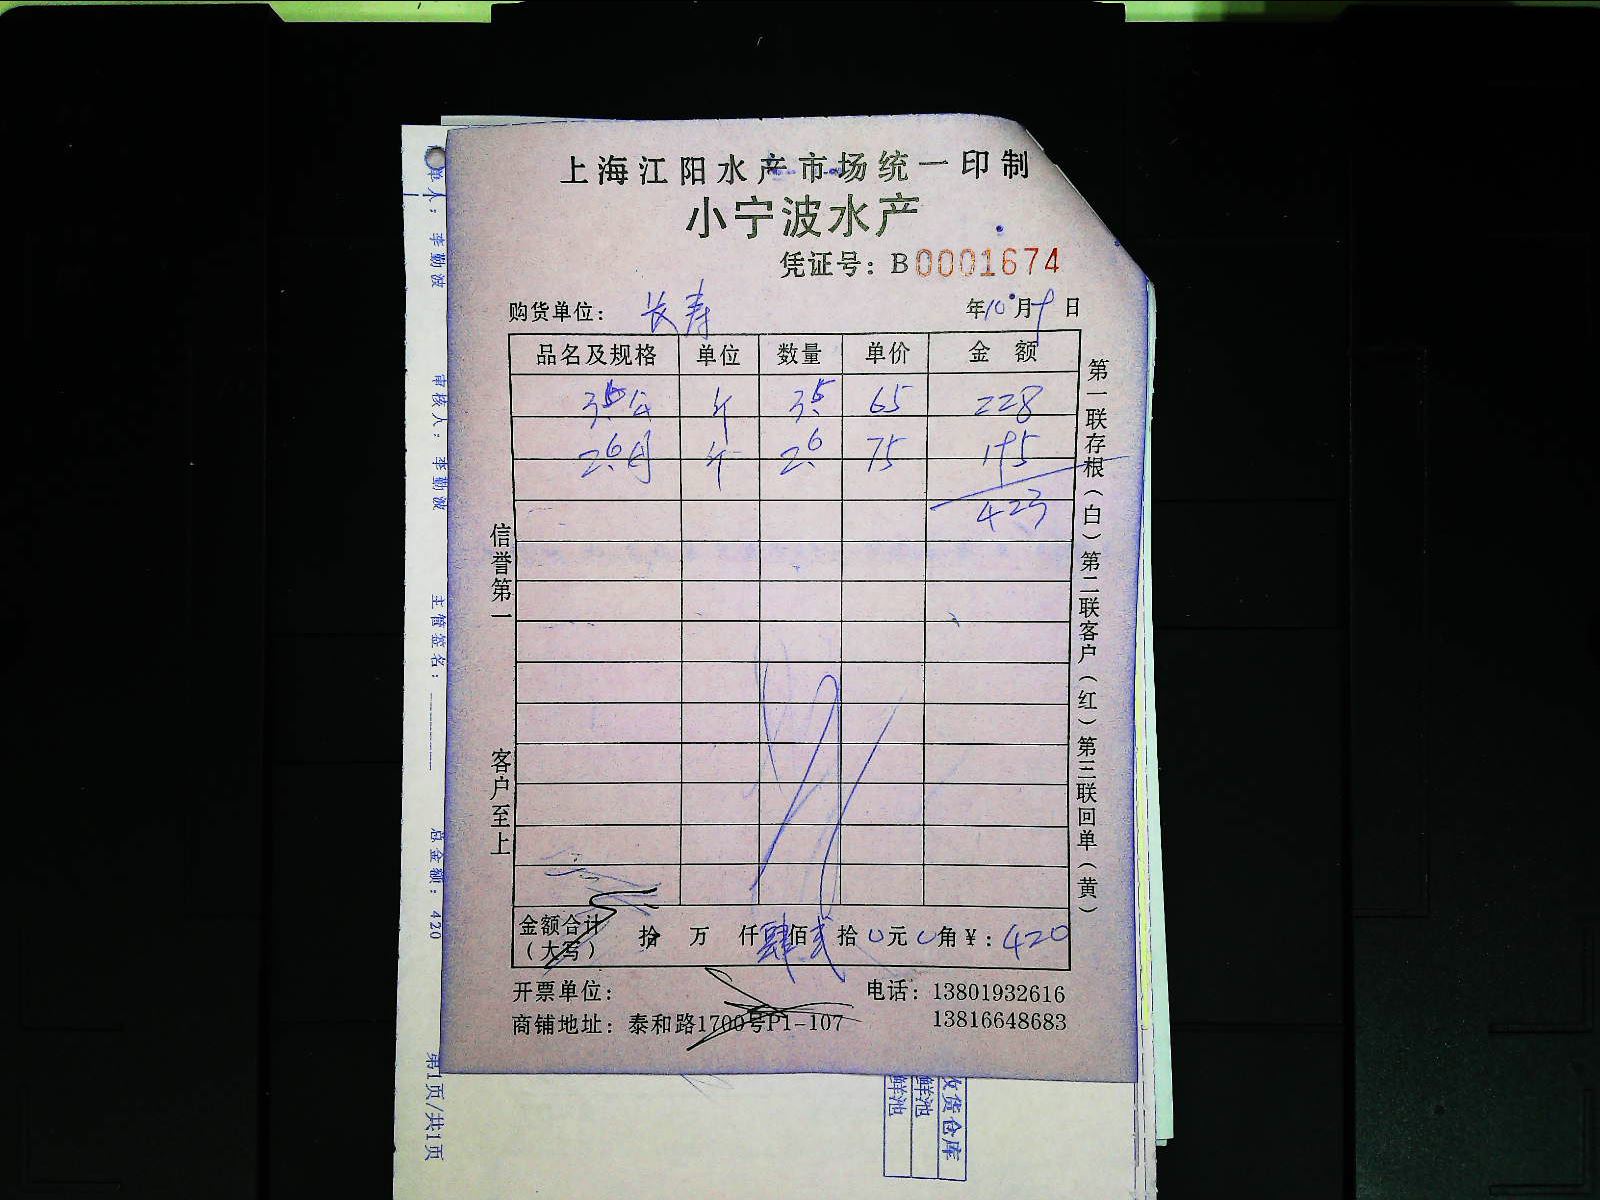 上海江阳水产市场统一印制
小宁波水产
凭证号：B0001674
购货单位： 长寿 年10月9日
品名及规格 单位 数量 单价 金 额
3.5公 斤 3.5 65 228
2.6月 斤 2.6 75 195
423
金额合计（大写） 拾 万 仟肆佰贰拾0元0角￥：420
开票单位： 电话：13801932616
商铺地址：泰和路1700号P1-107 13816648683
信誉第一 客户至上
第一联存根（白）第二联客户（红）第三联回单（黄）
单人：李勤波 审核人：李勤波 主管签名： 总金额：420 第1页/共1页
收货仓库
鲜池
鲜池